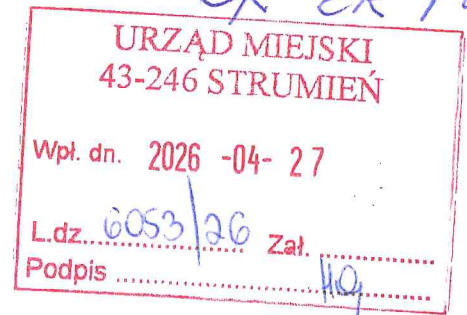 URZĄD MIEJSKI
43-246 STRUMIEŃ
Wpł. dn. 2026 -04- 27
L.dz. 6053/26 Zał. ..................
Podpis ..................